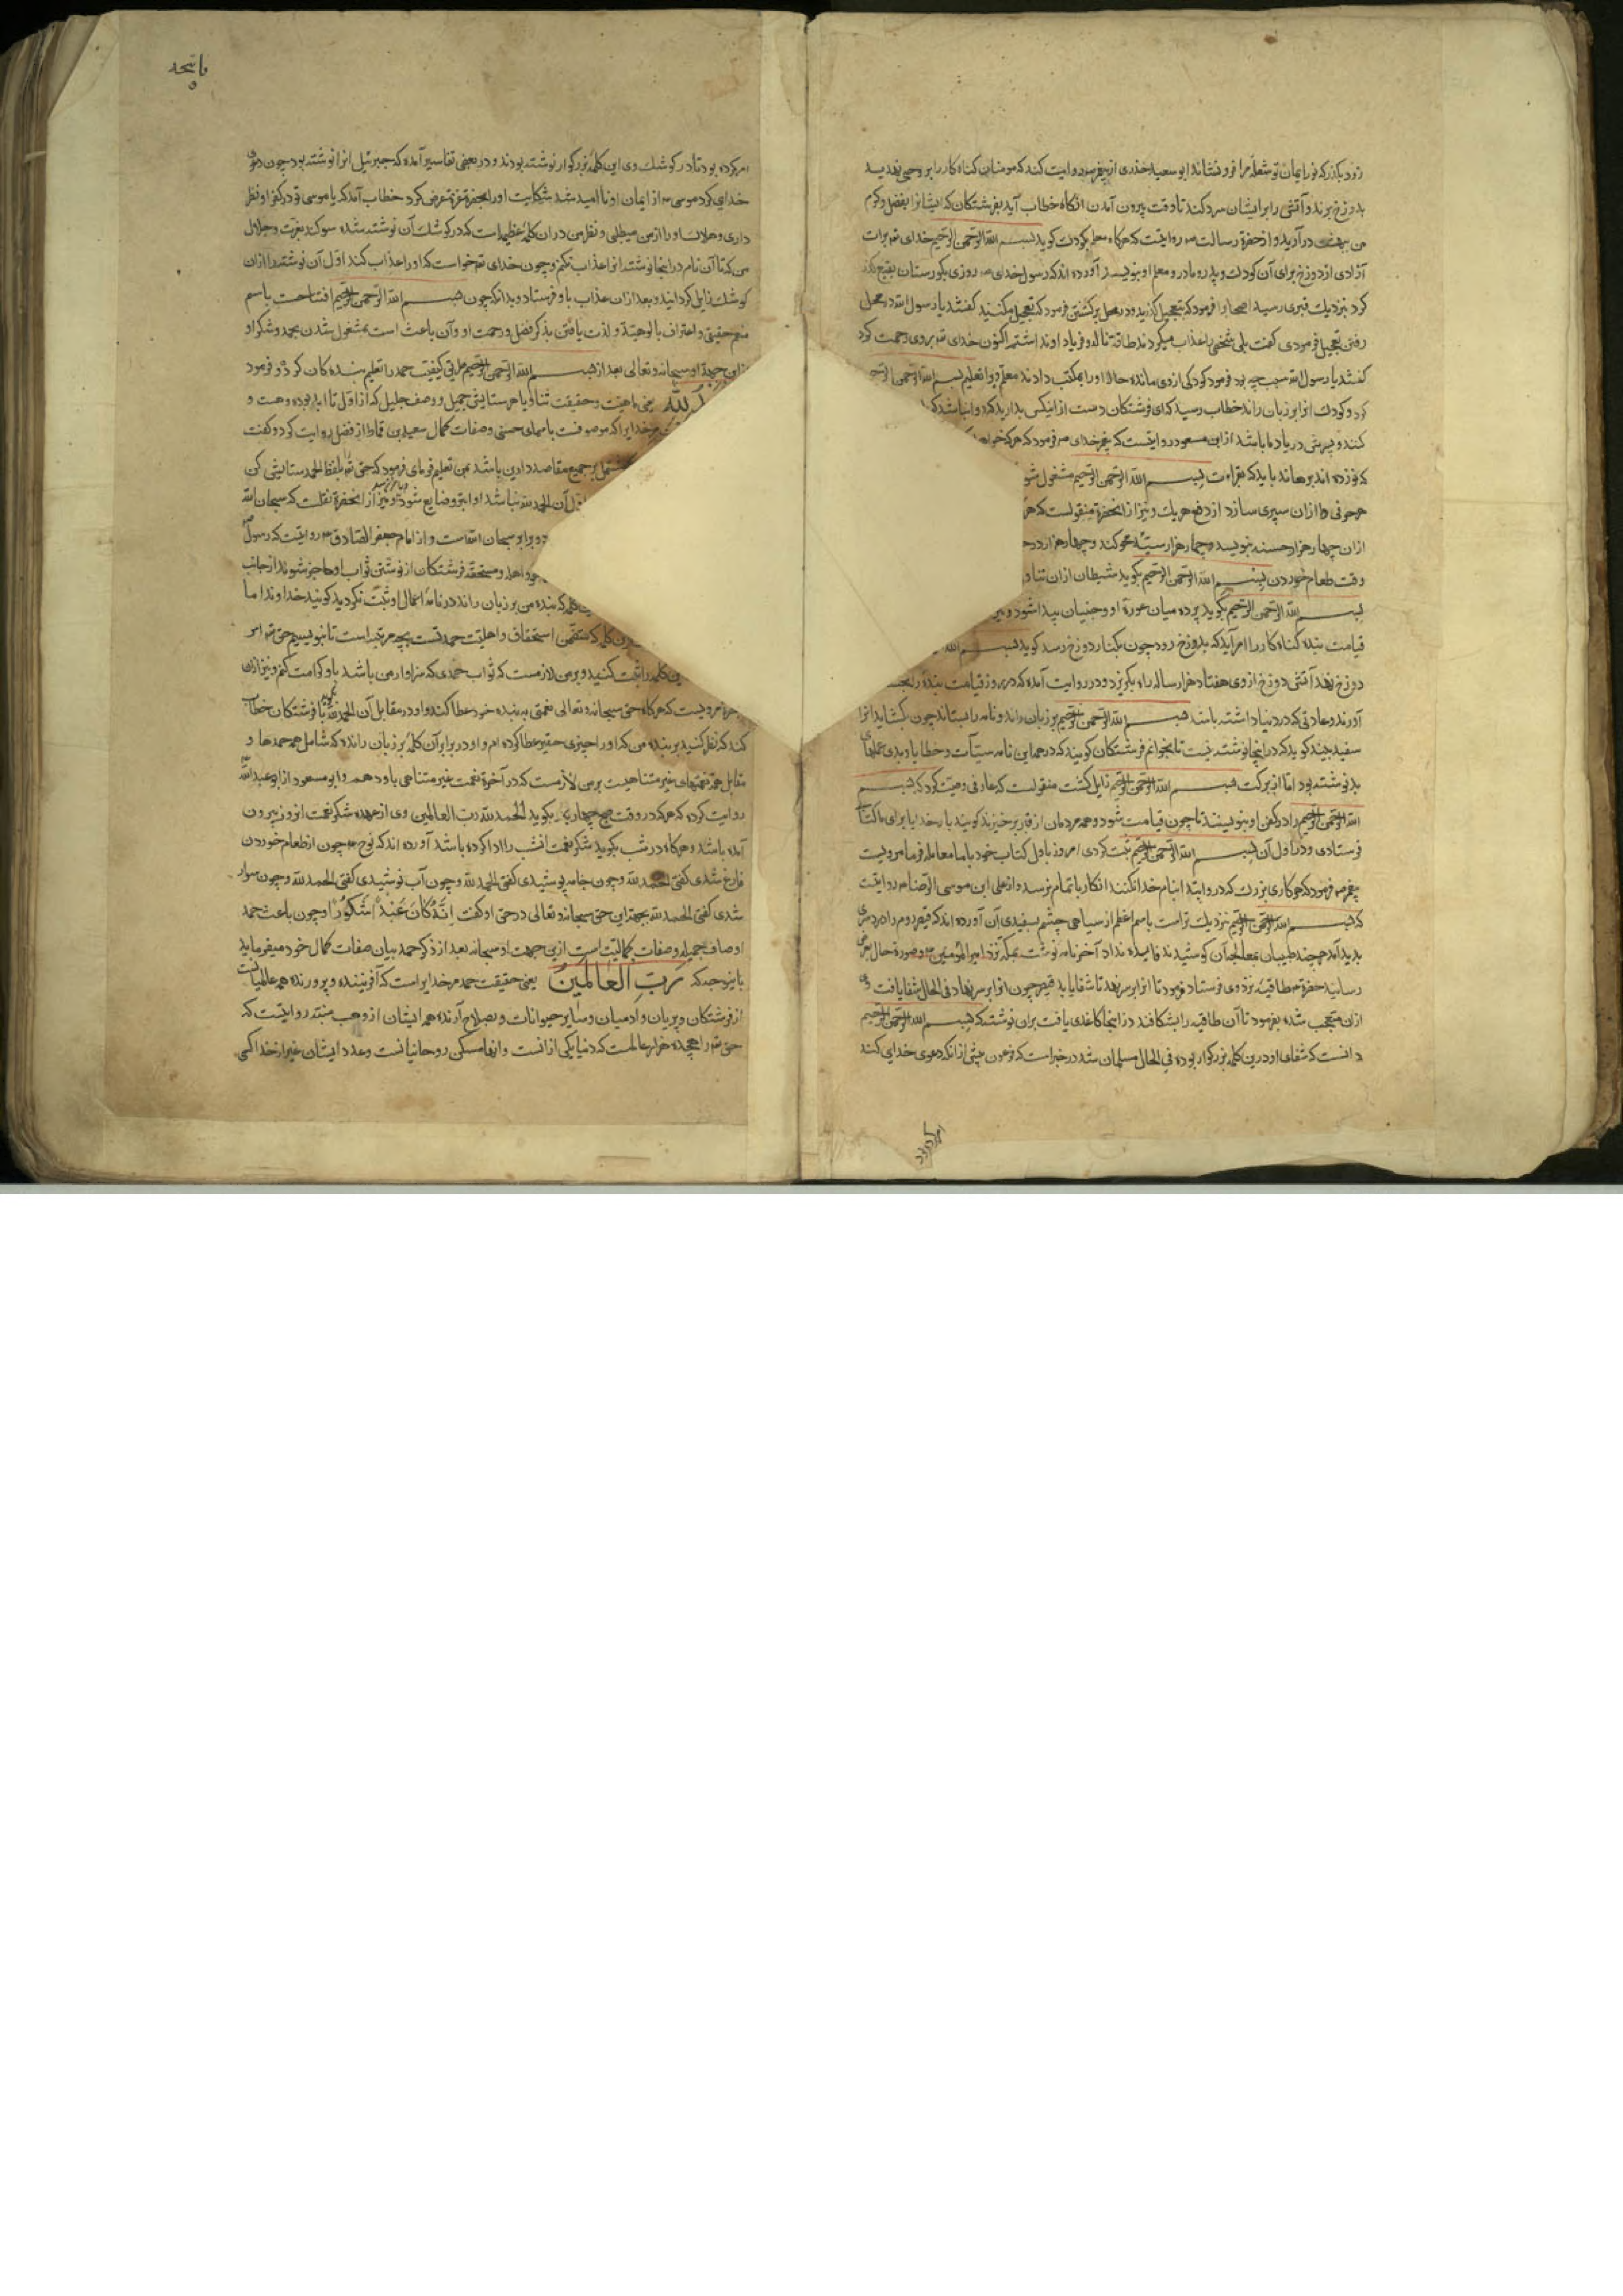 زود بگذر که نور ایمان تو شعلهٔ مرا فرو نشاند ابو سعید خدری از پیغمبر روایت کند که مومنان گناه کار را بدوزخ برند
بدوزخ برند و آتش را بر ایشان سرد کند تا وقت بیرون آمدن آنگاه خطاب آید بفرشتکان که ایشانرا بفضل و کرم
من ببهشت درآرید و از حضرة رسالت مرویست که هرکاه معلم کودک کوید بسم الله الرحمن الرحیم خدای تع برات
آزادی از دوزخ برای آن کودک و پدر و مادر و معلم او بنویسد آورده اند که رسول خدای روزی بکورستان بقیع کذر
کرد نزدیک قبری رسید اصحاب را فرمود که بتعجیل کذرید و در محل برکشتن فرمود که تعجیل مکنید کفتند یا رسول الله در محل
رفتن تعجیل فرمودی کفت بلی شخصی را عذاب میکردند طاقت ناله و فریاد او نداشتم اکنون خدای تع بر وی رحمت کرد
کفتند یا رسول الله سبب چه بود فرمود کودکی از وی مانده حالا او را بمکتب دادند معلم ویرا تعلیم بسم الله الرحمن
کرد و کودک آنرا بر زبان راند خطاب رسید که ای فرشتکان دست از این کس بدارید که روا نباشد که
کنند و پسرش در یاد ما باشد از ابن مسعود روایتست که پیغمبر خدای فرمود که هرکه خواهد
که نوزده اند برهاند باید که بقراءت بسم الله الرحمن الرحیم مشغول شود
هر حرفی را از آن سپری سازد از دفع هر یک و نیز از آنحضرة منقولست که هر
از آن چهار هزار حسنه بنویسد و چهار هزار سیئه محو کند و چهار هزار درجه
وقت طعام خوردن بسم الله الرحمن الرحیم بکوید شیطان از آن
بسم الله الرحمن الرحیم بکوید پرده میان عورة او و جنیان پیدا شود و
قیامت بنده کناه کار را امر آید که بدوزخ رود چون بکنار دوزخ رسد کوید بسم الله
دوزخ نهد آتش دوزخ از وی هفتاد هزار ساله راه بکریزد و در روایت آمده که در روز قیامت بنده را
آورند و عادتی که در دنیا داشته باشد بسم الله الرحمن الرحیم بر زبان راند و نامه را بستاند چون بکشاید آنرا
سفید بیند کوید که در اینجا نوشته نیست تا بخوانم فرشتکان کویند که در همه این نامه سیئات و خطایا و بدی عملهای
بد نوشته بود اما از برکت بسم الله الرحمن الرحیم زایل کشت منقولست که عارفی وصیت کرد که بسم
الله الرحمن الرحیم را در کفن او بنویسند تا چون قیامت شود و همه مردمان از قبر برخیزند کویند بار خدایا برای ما کتاب
فرستادی و در اول آن بسم الله الرحمن الرحیم ثبت کردی امروز باول کتاب خود با ما معامله فرما مرویست
پیغمبر فرمود که هر کاری بزرک که در او ابتدا بنام خدا نکنند آن کار باتمام نرسد و از علی ابن موسی الرضا روایتست
که بسم الله الرحمن الرحیم نزدیک تر است باسم اعظم از سیاهی چشم بسفیدی آن آورده اند که قیصر روم را درد سری
پدید آمد هرچند طبیبان بمعالجه آن کوشیدند فایده نداد آخر نامه نوشت نزد امیر المؤمنین و صورة حال بعرض
رسانید حضرة طاقیه نزد وی فرستاد و فرمود تا آنرا بر سر نهد تا شفا یابد قیصر چون آنرا بر سر نهاد فی الحال شفا یافت وی
ازان متعجب شده بفرمود تا آن طاقیه را بشکافند در آنجا کاغذی یافت بران نوشته که بسم الله الرحمن الرحیم
دانست که شفای او درین کلمه بزرکوار بوده فی الحال مسلمان شد در خبر است که فرعون پیش از آنکه دعوی خدایی کند
امر کرده بود
فاتحه
۵
امر کرده بود تا در کوشک وی این کلمه بزرکوار نوشته بودند و در بعضی تفاسیر آمده که جبرئیل آنرا نوشته بود چون دعوی
خدایی کرد موسی از ایمان او نا امید شد شکایت او را بحضرة عزة عرض کرد خطاب آمد که یا موسی تو در کفر او نظر
داری و هلاک او را از من میطلبی و نظر من در آن کلمه عظیمه است که در کوشک آن نوشته شده سوکند بعزت و جلال
من که تا آن نام در اینجا نوشته او را عذاب نکنم و چون خدای تع خواست که او را عذاب کند اول آن نوشته را از آن
کوشک زایل کردانید و بعد ازان عذاب باو فرستاد و بدانکه چون بسم الله الرحمن الرحیم افتتاحست باسم
منعم حقیقی و اعتراف بالوهیة و لذت یافتن بذکر فضل و رحمت او و آن باعث است بمشغول شدن بحمد و شکر او
ازین جهة او سبحانه و تعالی بعد از بسم الله الرحمن الرحیم طریق کیفیت حمد را تعلیم بندکان کرد و فرمود
لله یعنی ماهیت و حقیقت ثنا و یا هر ستایش جمیل و وصف جلیل که از اول تا ابد بوده و هست و
مر خدایرا که موصوفست باسمای حسنی و صفات کمال سعید بن قماط از فضل روایت کرد و کفت
مشتمل بر جمیع مقاصد دارین باشد بمن تعلیم فرمای فرمود که حق تع بلفظ الحمد ستایش کن
اول آن الحمد لله نباشد او ابتر و ضایع شود و نیز از آنحضرة نقلست که سبحان الله
دو برابر سبحان الله است و از امام جعفر الصادق روایتست که رسول
اهله و مستحقه فرشتکان از نوشتن ثواب او عاجز شوند از جانب
کلمه که بنده من بر زبان راند در نامه اعمال او ثبت نکردید کویند خداوندا ما
این کلمه که متضمن استحقاق و اهلیت حمد تست بچه مرتبه است تا بنویسیم حق تع امر
این کلمه را ثبت کنید و بر من لازمست که ثواب حمدی که سزاوار من باشد باو کرامت کنم و نیز از آن
حضرة مرویست که هرکاه حق سبحانه و تعالی نعمتی به بنده خود عطا کند و او در مقابل آن الحمد لله بکوید با فرشتکان خطاب
کند که نظر کنید بر بنده من که او را چیزی حقیر عطا کرده ام و او در برابر آن کلمه بر زبان رانده که شامل همه حمدها و
مقابل همه نعمتهای غیر متناهیست بر من لازمست که در آخرة نعمت غیر متناهی باو دهم و ابو مسعود از ابو عبد الله
روایت کرده که هرکه در وقت صبح چهار بار بکوید الحمد لله رب العالمین وی از عهده شکر نعمت آنروز بیرون
آمده باشد و هرکاه در شب بکوید شکر نعمت آنشب را ادا کرده باشد آورده اند که نوح چون از طعام خوردن
فارغ شدی کفتی الحمد لله و چون جامه پوشیدی کفتی الحمد لله و چون آب نوشیدی کفتی الحمد لله و چون سوار
شدی کفتی الحمد لله بجهة این حق سبحانه و تعالی در حق او کفت اِنَّهُ كَانَ عَبْدًا شَكُورًا و چون باعث حمد
اوصاف جمیله و صفات کمالیت است ازین جهت او سبحانه بعد از ذکر حمد بیان صفات کمال خود میفرماید
باینوجه که رَبِّ العَالَمِينَ یعنی حقیقت حمد مر خدایراست که آفریننده و پرورنده همه عالمیانست
از فرشتکان و پریان و ادمیان و سایر حیوانات و بصلاح آرنده همه ایشان از وهب منبه روایتست که
حق تع را هجده هزار عالمست که دنیا یکی از انست و اینها مسکن روحانیانست و عدد ایشان غیر از خدا کسی